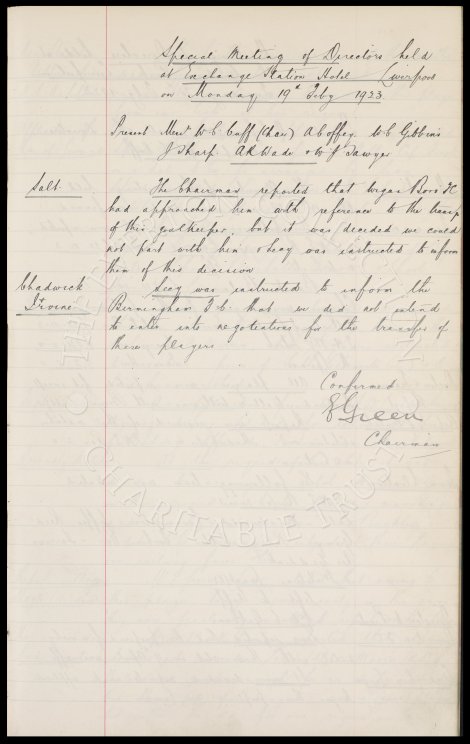 Special Meeting of Directors held
at Exchange Station Hotel Liverpool
on Monday 19th Feby 1923.
Present Messrs W.C. Cuff (Chair) A Coffey W.C. Gibbins
J Sharp. A.R. Wade & W J Sawyer
Salt.
The Chairman reported that Wigan Boro FC
had approached him with reference to the transfer
of this goalkeeper, but it was decided we could
not part with him & Secy was instructed to inform
them of this decision
Chadwick
Irvine
Secy was instructed to inform the
Birmingham F.C. that we did not intend
to enter into negotiations for the transfer of
these players
Confirmed
E Green
Chairman
THE EVERTON
CHARITABLE TRUST